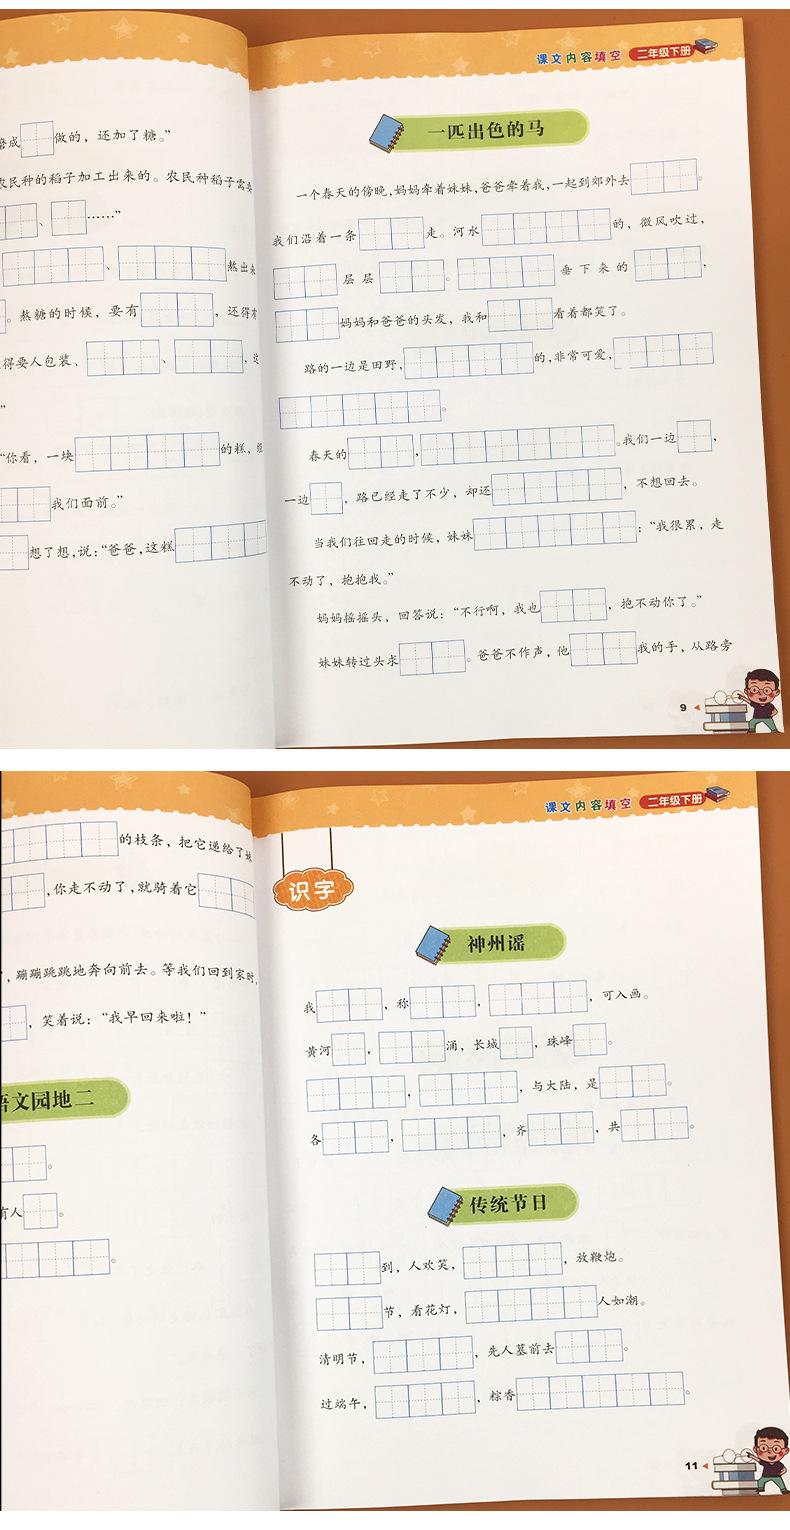 磨成 做的，还加了糖。”
农民种的稻子加工出来的。农民种稻子需要
、 ……”
、 熬出来
。熬糖的时候，要有 ，还得有
得要人包装、 、 ，这
”
“你看，一块 的糕，经
我们面前。”
想了想，说：“爸爸，这糕
课文内容填空 二年级下册
一匹出色的马
一个春天的傍晚，妈妈牵着妹妹，爸爸牵着我，一起到郊外去 。
我们沿着一条 走。河水 的，微风吹过，
层层 。 垂下来的 ，
妈妈和爸爸的头发，我和 看着都笑了。
路的一边是田野， 的，非常可爱，
。
春天的 ， 。我们一边 ，
一边 ，路已经走了不少，却还 ，不想回去。
当我们往回走的时候，妹妹 ：“我很累，走
不动了，抱抱我。”
妈妈摇摇头，回答说：“不行啊，我也 ，抱不动你了。”
妹妹转过头求 。爸爸不作声，他 我的手，从路旁
9
的枝条，把它递给了妹
，你走不动了，就骑着它
，蹦蹦跳跳地奔向前去。等我们回到家时，
，笑着说：“我早回来啦！”
语文园地二
。
有人 。
。
课文内容填空 二年级下册
识字
神州谣
我 ，称 ， ，可入画。
黄河 ， 涌，长城 ，珠峰 。
， ，与大陆，是 。
各 ， ，齐 ，共 。
传统节日
到，人欢笑， ，放鞭炮。
节，看花灯， 人如潮。
清明节， ，先人墓前去 。
过端午， ，粽香 。
11